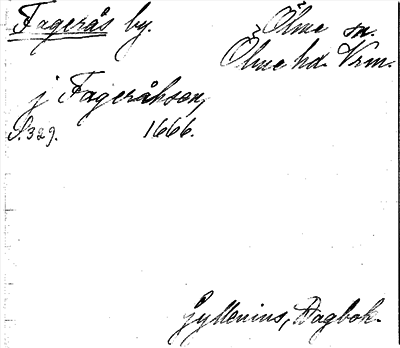 Fagerås by. Ölme sn.
Ölme hd. Vrm.
j Fageråhsen,
S. 329. 1666.
Gyllenius, Dagbok.